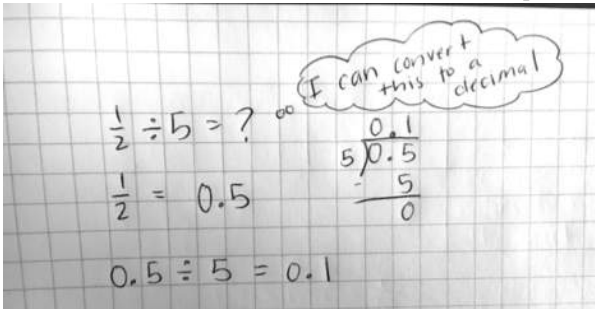 I can convert
this to a
decimal
1/2 ÷ 5 = ?
0.1
5)0.5
- 5
0
1/2 = 0.5
0.5 ÷ 5 = 0.1